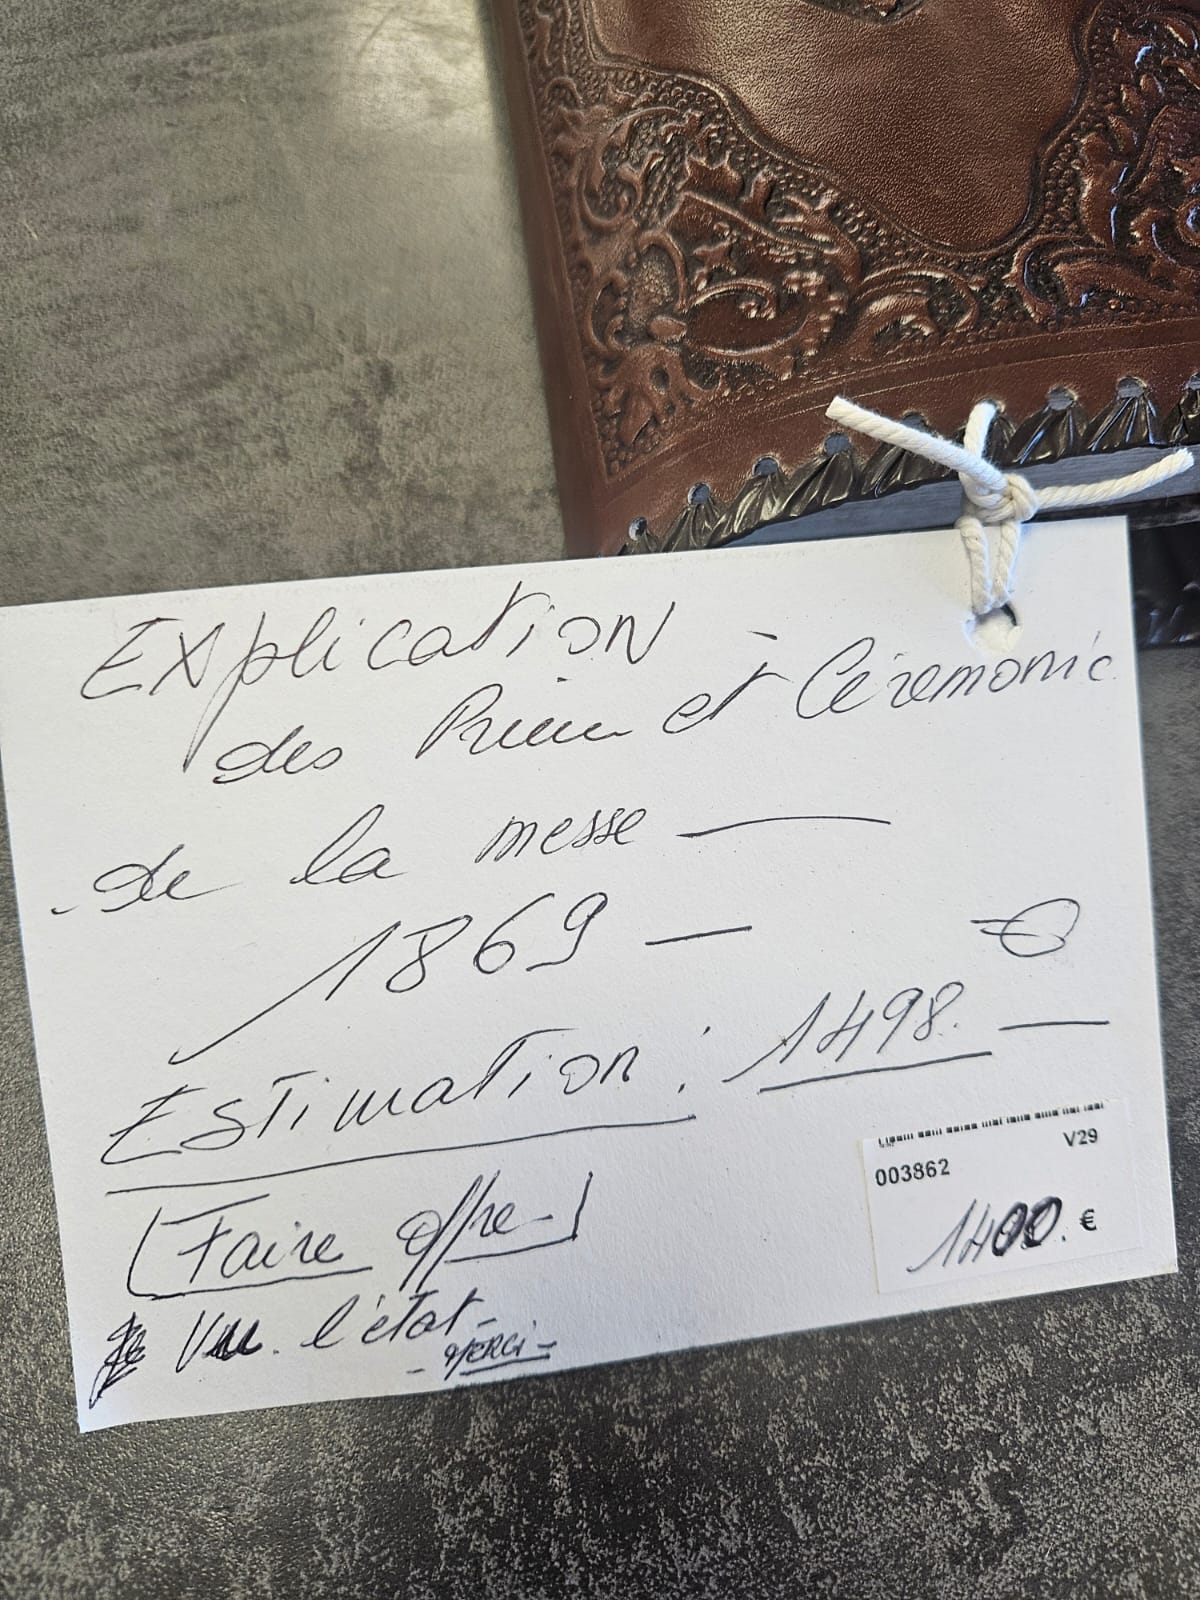 Explication
des Prières et Cérémonie
de la messe —
1869 — €
Estimation : 1498. —
V29
003862
1400. €
[Faire offre]
Vu. l'état -
- MERCI -